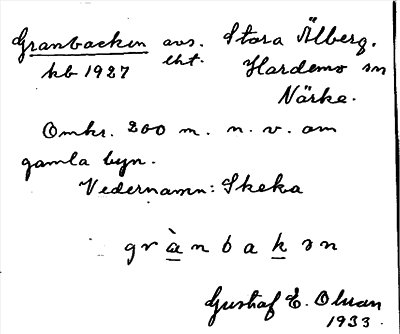 Granbacken avs. Stora Älberg.
kb 1927 eht. Hardemo sn
Närke.
Omkr. 200 m. n. v. om
gamla byn.
Vedernamn: Skeka
grànbakən
Gustaf E. Olsan
1933.